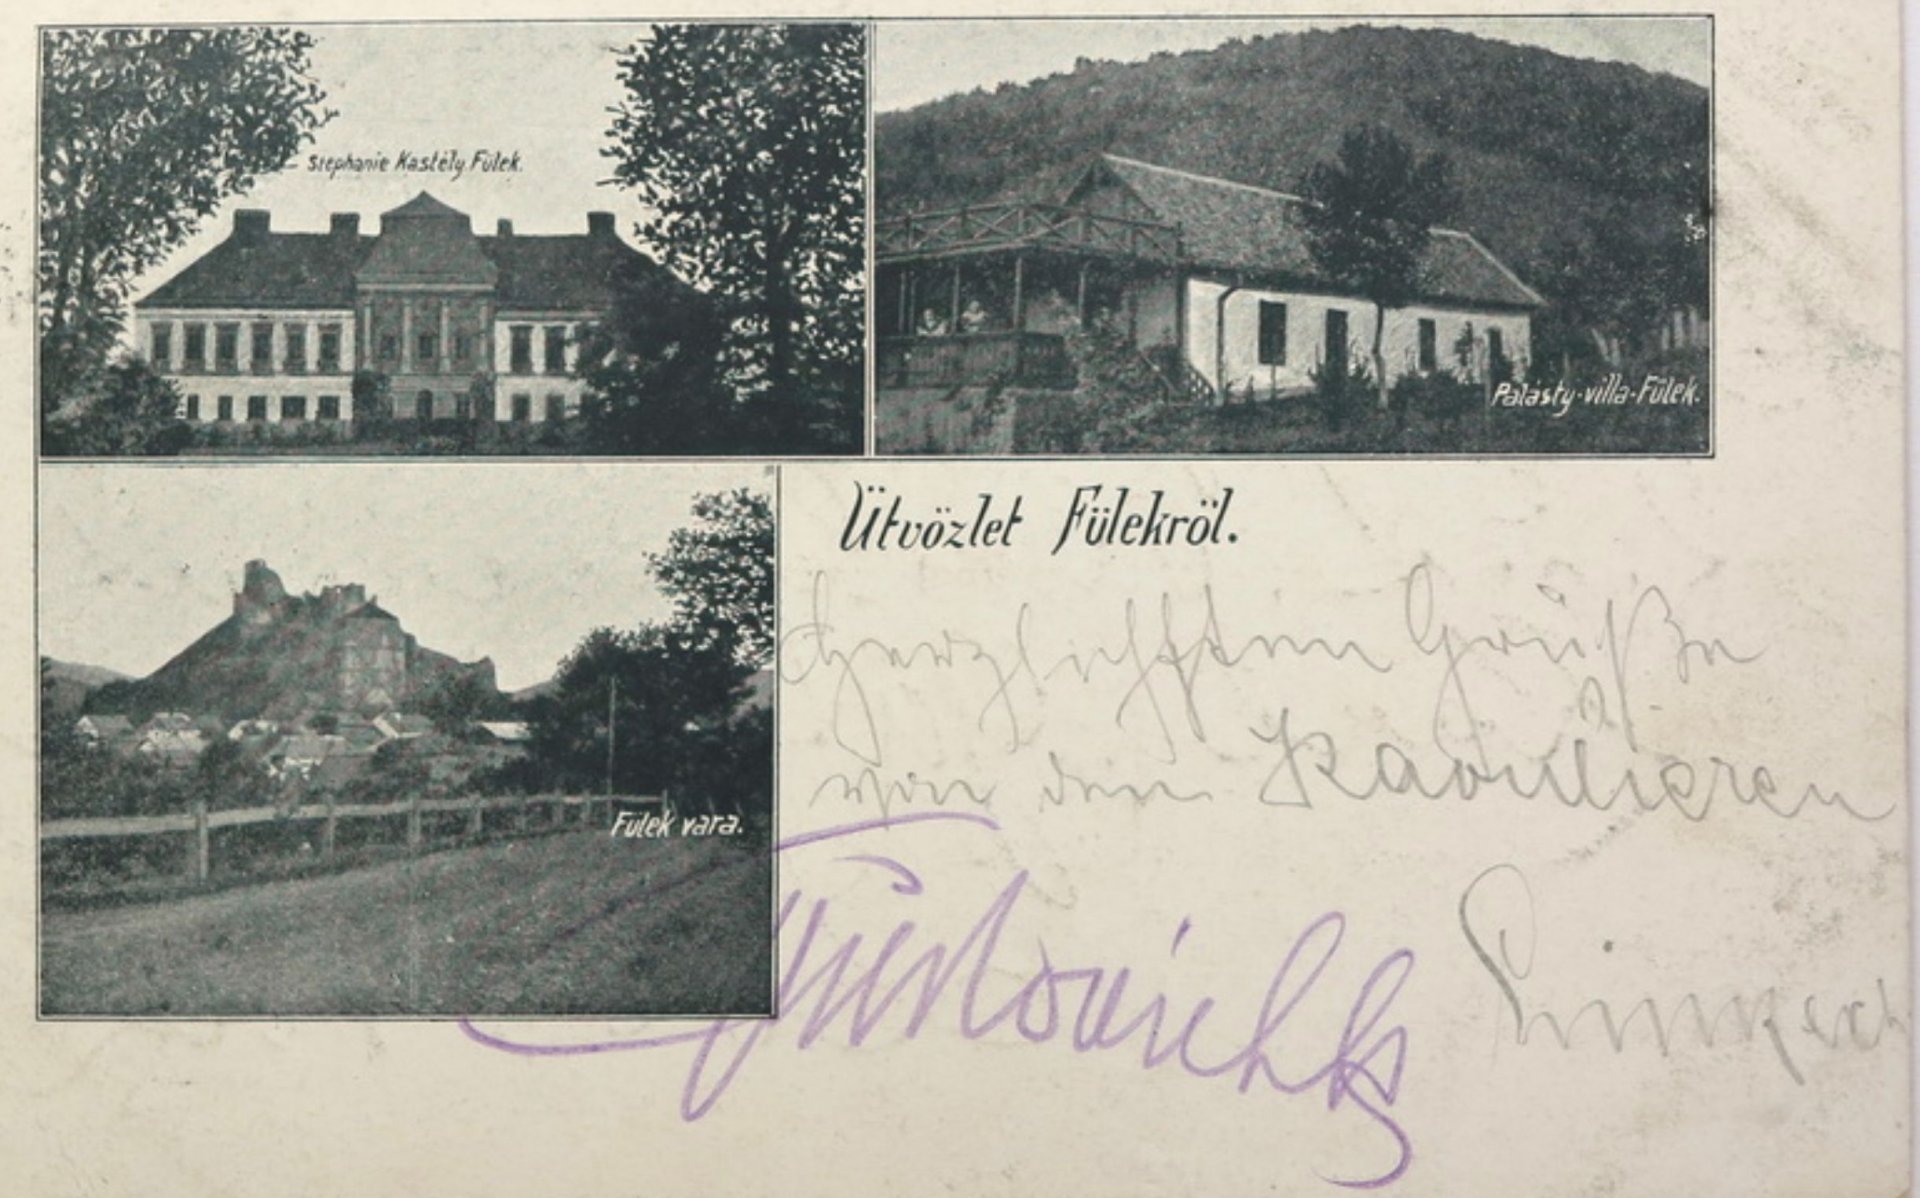 Stephanie Kastély Fülek.
Palásty-villa-Fülek.
Fülek vara.
Ütvözlet Fülekröl.
Herzlichsten Grüße
von den Kavalieren